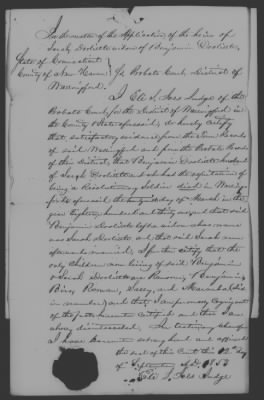 In the matter of the Application of the heirs of
Sarah Doolittle widow of Benjamin Doolittle,
State of Connecticut
County of New Haven Probate Court, District of
Wallingford.
I, Eli S. Ives Judge of the
Probate Court for the District of Wallingford in
the County & State aforesaid, do hereby certify
that, satisfactory evidence from the Town Records
of said Wallingford and from the Probate Records
of this District, that Benjamin Doolittle husband
of Sarah Doolittle and who had the reputation of
being a Revolutionary Soldier died in Walling-
ford aforesaid on the day of March in the
year Eighteen hundred and thirty and that said
Benjamin Doolittle left a widow whose name
was Sarah Doolittle and that said Sarah
remarried, I further certify, that the
only Children now living of said Benjamin
& Sarah Doolittle are Benjamin
and
in number) and that I am personally cognizant
of the facts herein certified to and that I am
disinterested. In testimony whereof
I have hereunto set my hand and affixed
the seal of this Court this day
of September A.D. 1853
Eli S. Ives Judge